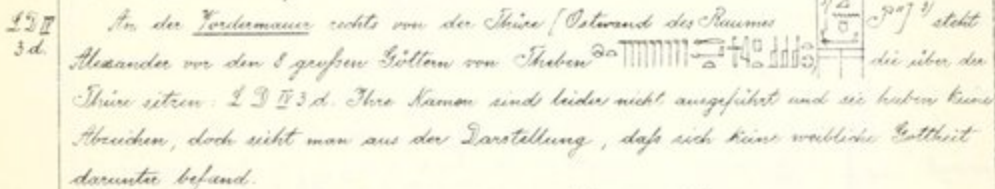 LD IV An der Vordermauer rechts von der Thüre [Ostwand des Raumes „P“] 3) steht
3 d. Alexander vor den 8 großen Göttern von Theben die über der
Thüre sitzen: L D IV 3 d. Ihre Namen sind leider nicht ausgeführt und sie haben keine
Abzeichen, doch sieht man aus der Darstellung, daß sich keine weibliche Gottheit
darunter befand.